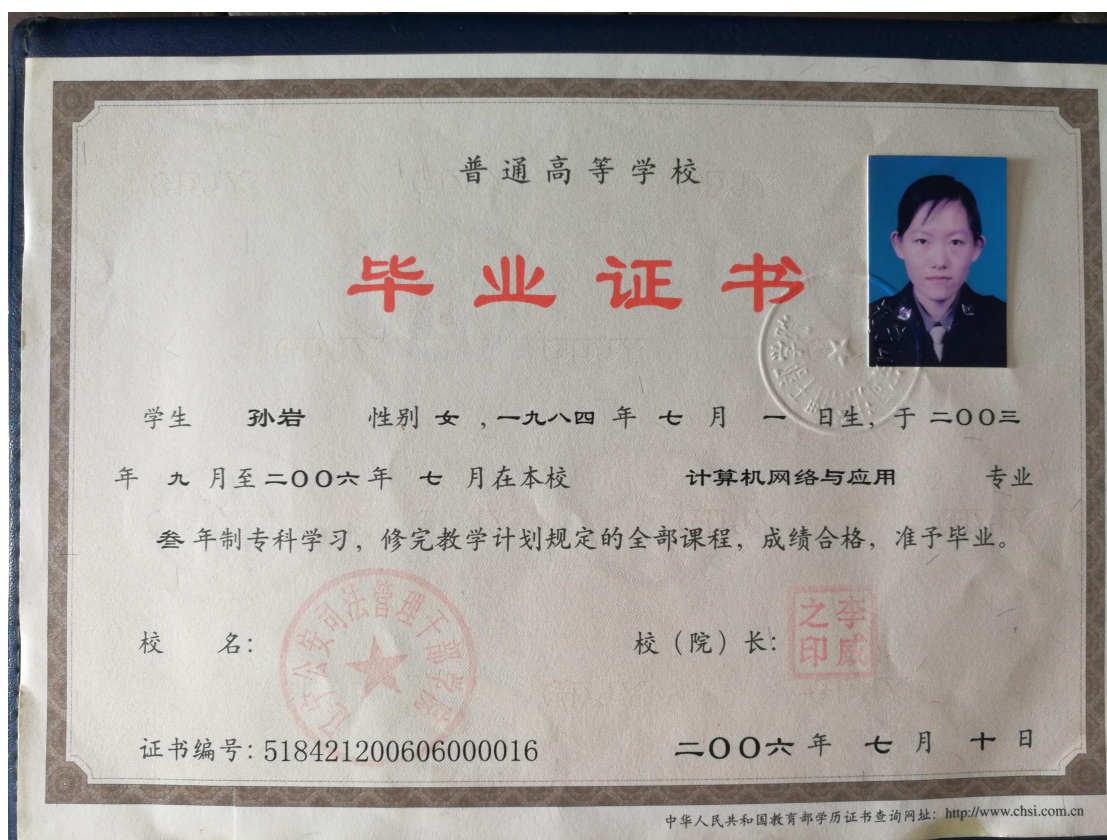 普通高等学校
毕业证书
学生 孙岩 性别 女 ,一九八四 年 七 月 一 日生, 于 二〇〇三
年 九 月至 二〇〇六 年 七 月在本校 计算机网络与应用 专业
叁 年制专科学习, 修完教学计划规定的全部课程, 成绩合格, 准予毕业。
辽宁公安司法管理干部学院
校 名: 校(院)长: 李威之印
证书编号: 518421200606000016 二〇〇六 年 七 月 十 日
中华人民共和国教育部学历证书查询网址: http://www.chsi.com.cn